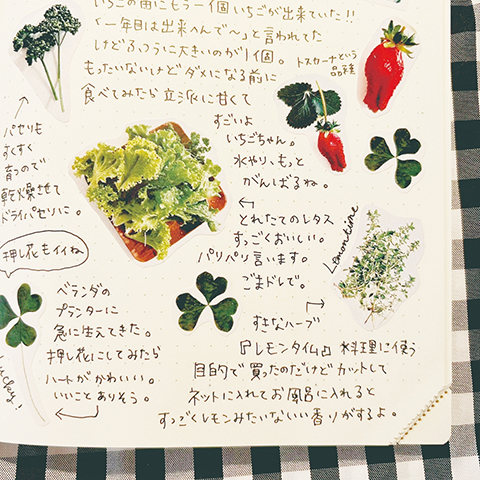 いちごの苗にもう一個いちごが出来ていた!!
「一年目は出来へんで〜」と言われてた
けどふつうに大きいのが1個。
トスカーナという
品種
もったいないけどダメになる前に
食べてみたら立派に甘くて
すごいよ
いちごちゃん。
水やり、もっと
がんばるね。
パセリも
すくすく
育つので
乾燥させて
ドライパセリに。
とれたてのレタス
すっごくおいしい。
パリパリ言います。
ごまドレで。
押し花もイイね
ベランダの
プランターに
急に生えてきた。
押し花にしてみたら
ハートがかわいい。
いいことありそう。
Lucday!
Lemontime
すきなハーブ
『レモンタイム』料理に使う
目的で買ったのだけどカットして
ネットに入れてお風呂に入れると
すっごくレモンみたいないい香りがするよ。